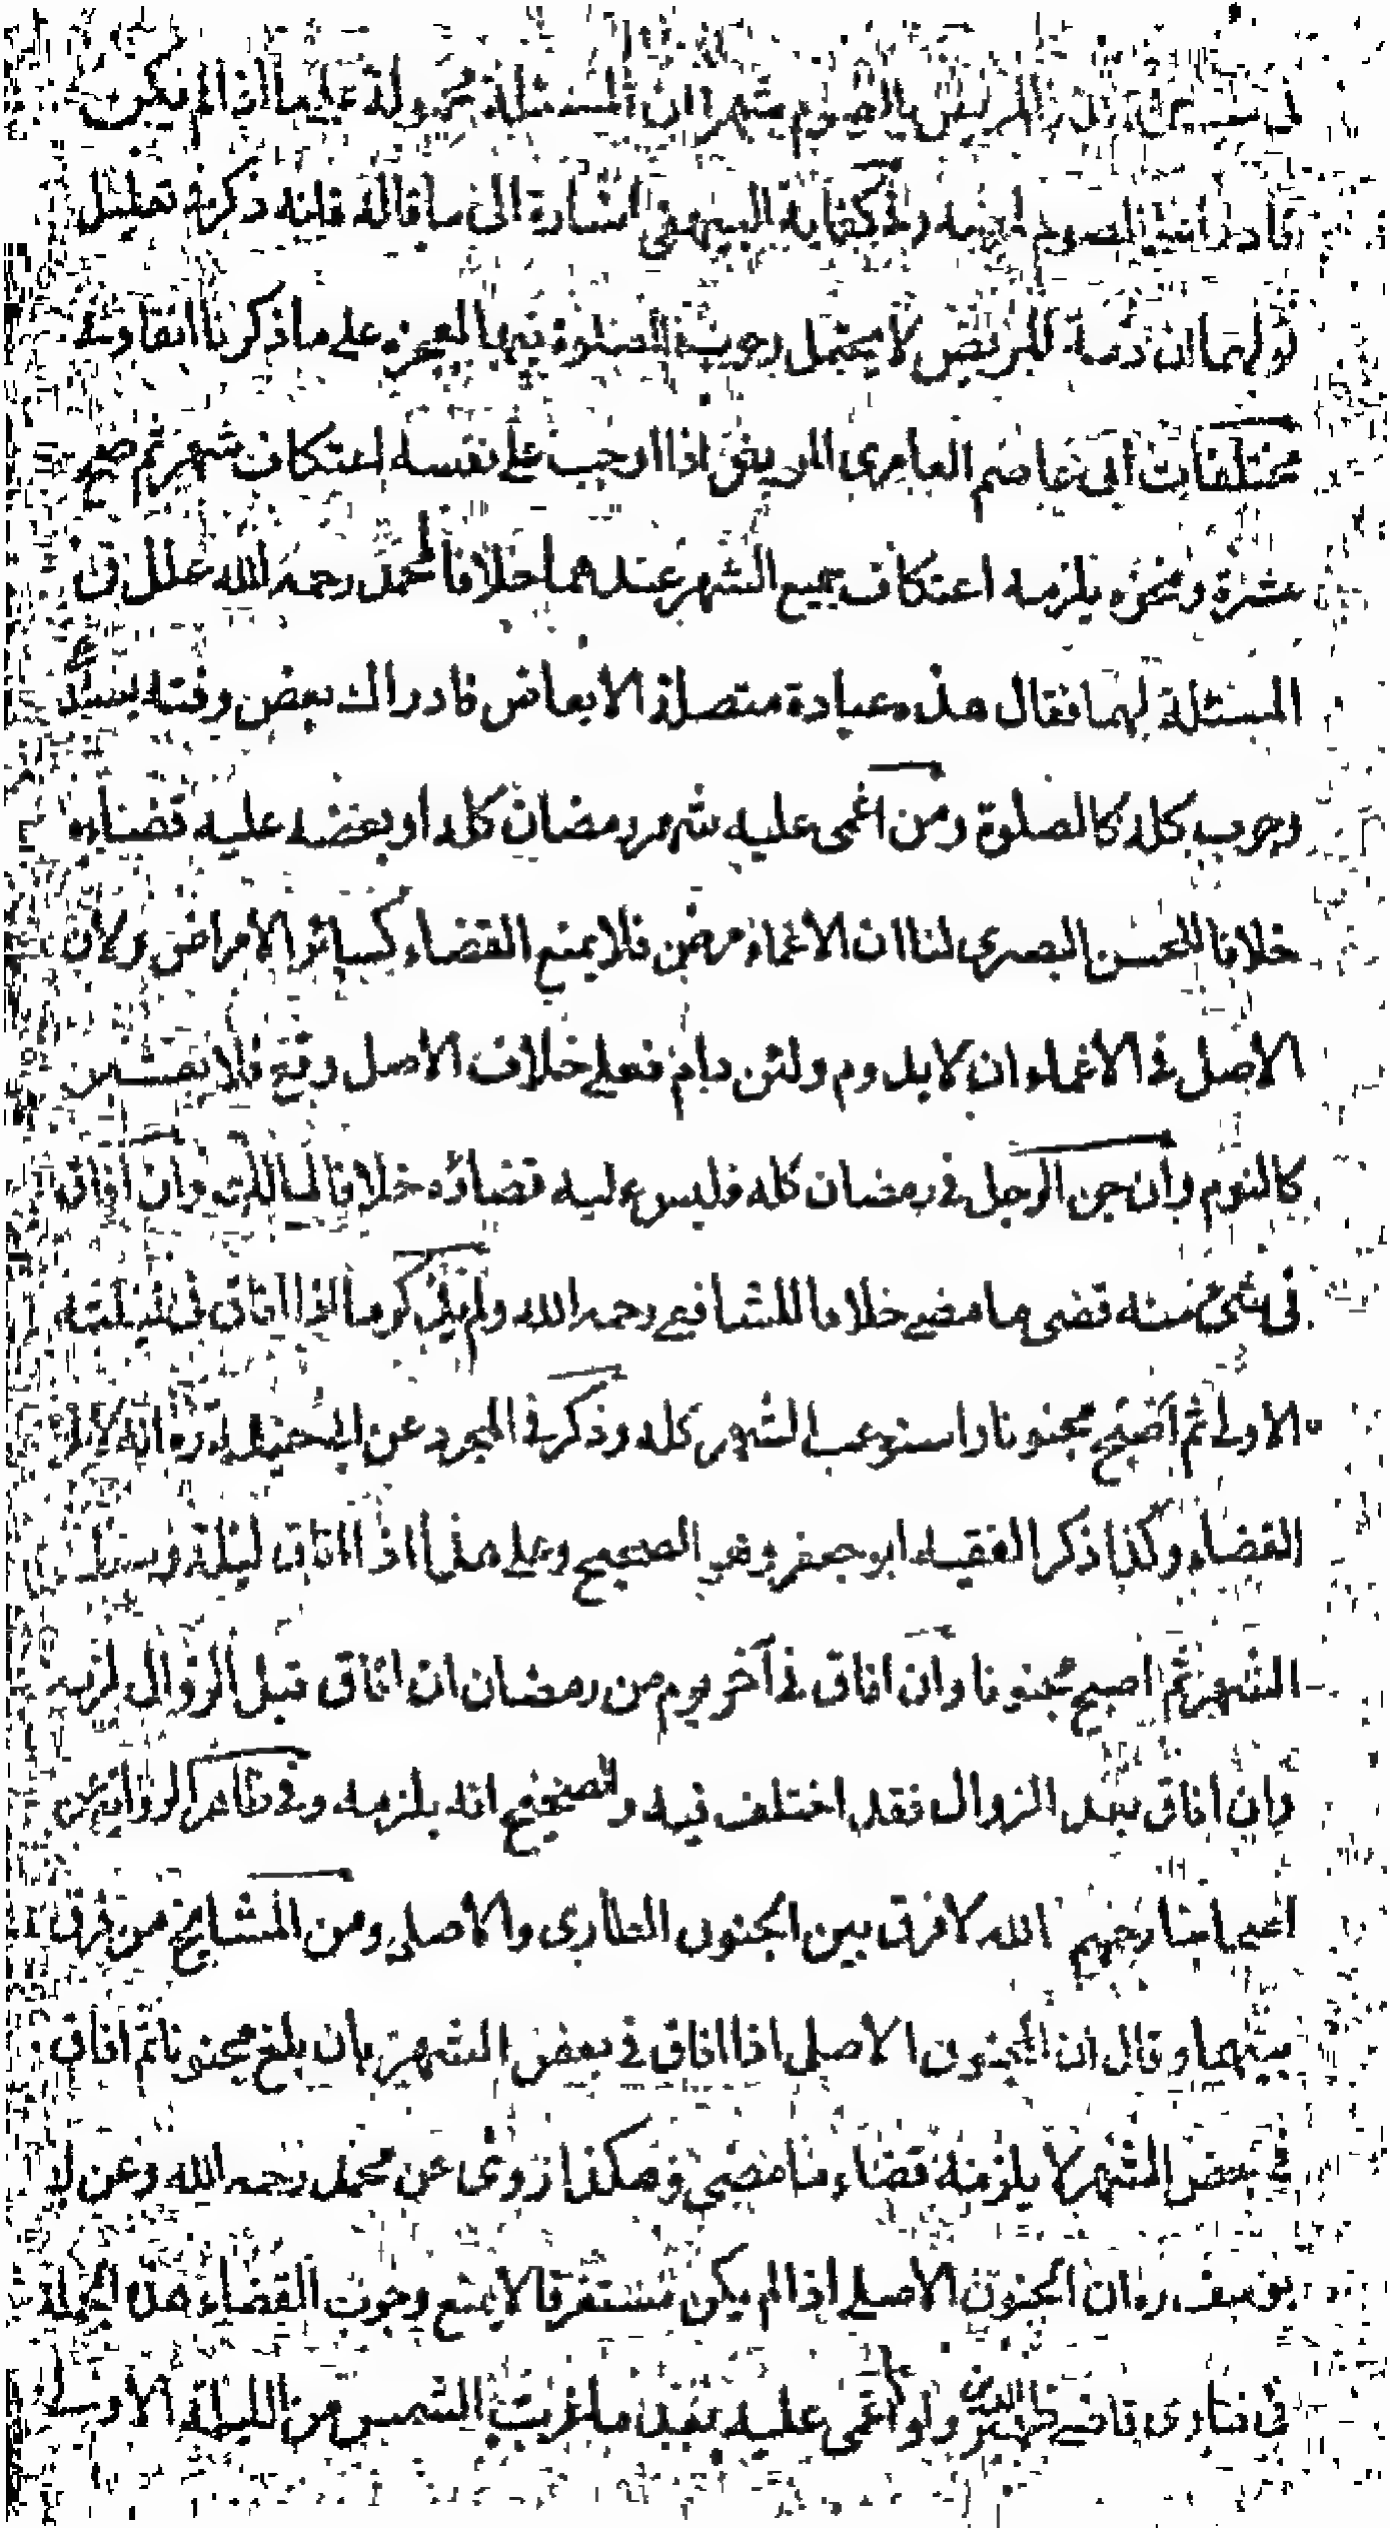 في مسئلة نذر المريض بالصوم شهرا ان المسئلة محمولة على ما اذا لم يكن
قادرا على الصوم اليه وفي كفاية البيهقي اشارة الى ما قاله فانه ذكر في تعليل
قولهما ان ذمة المريض لا يحتمل وجوب الصلوة فيها لعجزه على ما ذكرنا انفا وفي
مختلفات ابي عاصم العامري المريض اذا اوجب على نفسه اعتكاف شهر ثم صح
عشرة ونحوه يلزمه اعتكاف جميع الشهر عندهما خلافا لمحمد رحمه الله علل في
المسئلة لهما فقال هذه عبادة متصلة الابعاض فادراك بعض وقته بسبب
وجوب كله كالصلوة ومن اغمى عليه شهر رمضان كله او بعضه عليه قضاءه
خلافا للحسن البصري لنا ان الاغماء مرض فلا يمنع القضاء كسائر الامراض ولان
الاصل في الاغماء ان لا يدوم ولئن دام فعلى خلاف الاصل وقع فلا يعتبر
كالنوم وان جن الرجل في رمضان كله فليس عليه قضاؤه خلافا لمالك وان افاق
في شئ منه قضى ما مضى خلافا للشافعي رحمه الله ولم يذكر ما اذا افاق في ليلته
الاولى ثم اصبح مجنونا واستوعب الشهر كله وذكر في المجرد عن ابي حنيفة ره انه لا
القضاء وكذا ذكر الفقيه ابو جعفر وهو الصحيح وعلى هذا اذا افاق ليلة وسط
الشهر ثم اصبح مجنونا وان افاق في آخر يوم من رمضان ان افاق قبل الزوال لزمه
وان افاق بعد الزوال فقد اختلف فيه والصحيح انه يلزمه وفي ظاهر الرواية عن
اصحابنا رحمهم الله لا فرق بين الجنون الطاري والاصلي ومن المشايخ من فرق
بينهما وقال ان الجنون الاصلي اذا افاق في بعض الشهر بان بلغ مجنونا ثم افاق
في بعض الشهر لا يلزمه قضاء ما مضى وهكذا روى عن محمد رحمه الله وعن ابو
يوسف ره ان الجنون الاصلي اذا لم يكن مستغرقا لا يمنع وجوب القضاء هذه الجملة
في فتاوى قاضي ظهير الدين ولو اغمى عليه بعد ما غربت الشمس من الليلة الاولى